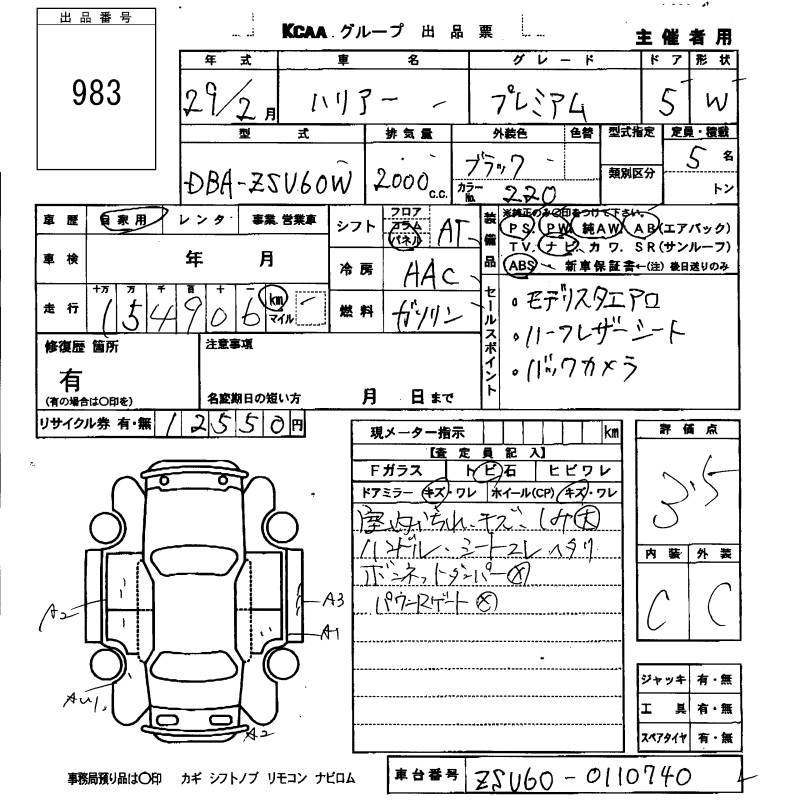 出品番号
983
KCAA グループ 出品票
主催者用
年式 車名 グレード ドア 形状
29/2月 ハリアー プレミアム 5 W
型式 排気量 外装色 色替 型式指定 定員・積載
DBA-ZSU60W 2000c.c. ブラック 5名
カラーNo. 220 類別区分 トン
車歴 自家用 レンタ 事業.営業車
車検 年 月
走行 十万 万 千 百 十 一
154906 km マイル
シフト フロア コラム パネル AT
冷房 AAC
燃料 ガソリン
装備品
※純正のみ○印をつけて下さい。
PS. PW. 純AW. AB(エアバック)
TV. ナビ. カワ. SR(サンルーフ)
ABS 新車保証書←(注)後日送りのみ
セールスポイント
・モデリスタエアロ
・ハーフレザーシート
・バックカメラ
修復歴 箇所
有
(有の場合は○印を)
注意事項
名変期日の短い方 月 日まで
リサイクル券 有・無 12550円
現メーター指示 km
【査定員記入】
Fガラス トビ石 ヒビワレ
ドアミラー キズ・ワレ ホイール(CP) キズ・ワレ
キズ、シミ大
ハンドル、シートスレ ヘタリ
ボンネットダンパー×
パワーRゲート×
評価点
3.5
内装 外装
C C
A2
A3
A1
AU1
A2
ジャッキ 有・無
工具 有・無
スペアタイヤ 有・無
事務局預り品は○印 カギ シフトノブ リモコン ナビロム
車台番号 ZSU60-0110740